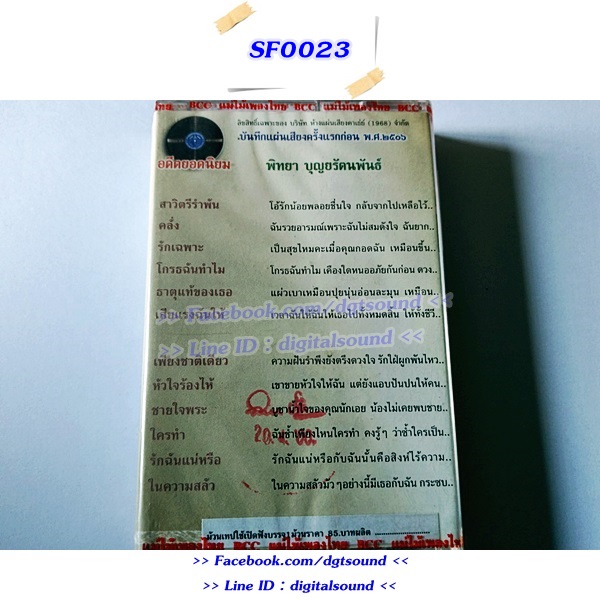 SF0023
ไทย BCC แม่ไม้เพลงไทย BCC แม่ไม้เพลงไทย BCC
ลิขสิทธิ์เฉพาะของ บริษัท ห้างแผ่นเสียงคาเธ่ย์ (1968) จำกัด
บันทึกแผ่นเสียงครั้งแรกก่อน พ.ศ.๒๕๐๖
อดีตยอดนิยม
พิทยา บุญยรัตนพันธ์
สาวิตรีรำพัน โอ้รักน้อยพลอยชื่นใจ กลับจากไปเหลือไว้..
คลั่ง ฉันรวยอารมณ์เพราะฉันไม่สมดังใจ ฉันยาก..
รักเฉพาะ เป็นสุขไหมคะเมื่อคุณกอดฉัน เหมือนชื่น..
โกรธฉันทำไม โกรธฉันทำไม เคืองใดทนออภัยกันก่อน ดวง..
ธาตุแท้ของเธอ แผ่วเบาเหมือนปุยนุ่นอ่อนละมุน เหมือน..
เสียแรงฉันให้ เวลาฉันให้ฉันให้เธอไปทั้งหมดสิ้น ให้ทั้งชีวี..
>> Facebook.com/dgtsound <<
>> Line ID : digitalsound <<
เพียงชาติเดียว ความฝันรำพึงยังตรึงดวงใจ รักใฝ่ผูกพันไหว..
หัวใจร้องไห้ เขาขายหัวใจให้ฉัน แต่ยังแอบปันปนให้คน..
ชายใจพระ บูชาน้ำใจของคุณนักเอย น้องไม่เคยพบชาย..
ใครทำ ฉันช้ำเพียงไหนใครทำ คงรู้ๆ ว่าช้ำใครเป็น..
รักฉันแน่หรือ รักฉันแน่หรือกับฉันนั้นคือสิงห์ไร้ความ..
ในความสลัว ในความสลัวมัวๆอย่างนี้มีเธอกับฉัน กระซบ..
ม้วนเทปใช้เปิดฟังบรรจุ 1 ม้วนราคา 85.บาทผลิต
แม่ไม้เพลงไทย BCC แม่ไม้เพลงไทย BCC แม่ไม้เพลงไทย
>> Facebook.com/dgtsound <<
>> Line ID : digitalsound <<